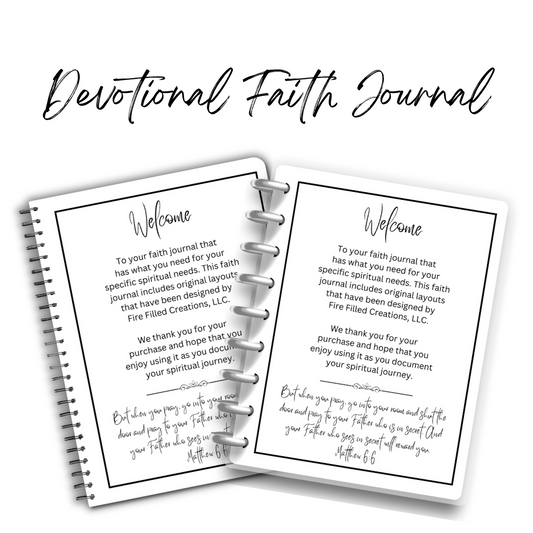 Devotional Faith Journal
Welcome
To your faith journal that
has what you need for your
specific spiritual needs. This faith
journal includes original layouts
that have been designed by
Fire Filled Creations, LLC.
We thank you for your
purchase and hope that you
enjoy using it as you document
your spiritual journey.
But when you pray, go into your room
door and pray to your Father who
your Father who sees in
Matthew 6:6
Welcome
To your faith journal that
has what you need for your
specific spiritual needs. This faith
journal includes original layouts
that have been designed by
Fire Filled Creations, LLC.
We thank you for your
purchase and hope that you
enjoy using it as you document
your spiritual journey.
But when you pray, go into your room and shut the
door and pray to your Father who is in secret. And
your Father who sees in secret will reward you.
Matthew 6:6